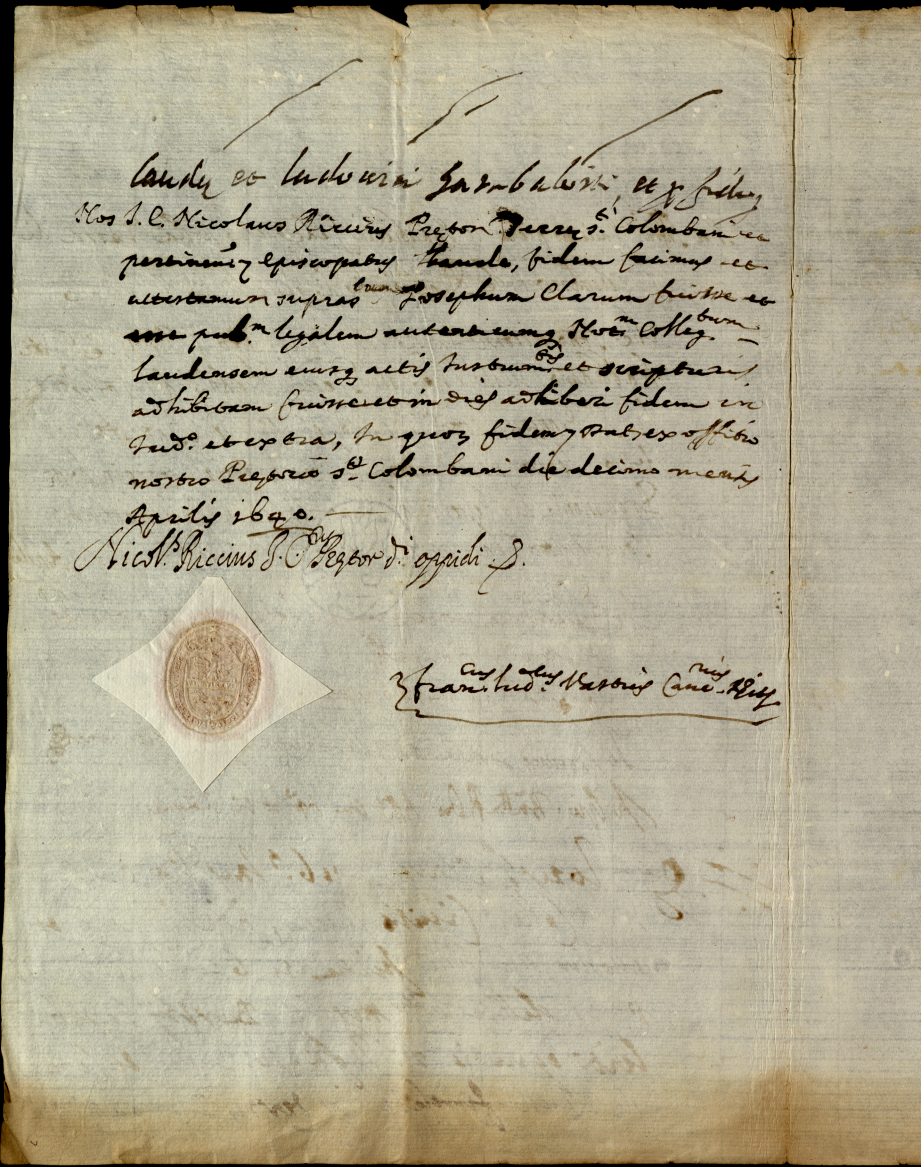 Laudę et Ludovici Garabalotti, et ꝑ fide
Nos I. C. Nicolaus Riccius Pretor Terrę s.ti Colombani et
pertinent. Episcopatus Laude, fidem facimus et
attestamur supras.tum Josephum Clarum fuisse et
esse pub.m legalem autenticumq. Not.m Colleg.tum
laudensem eiusq. actis Instrum.tis et scripturis
adhibitam fuisse et in dies adhiberi fidem in
Iud.o et extra, In quor. fidem Dat. ex offitio
nostro Pretorio s.ti Colombani die decimo mensis
Aprilis 1640.
Nicol.s Riccius I. C. Pretor d.i oppidi
Fran.cus Lud.cus